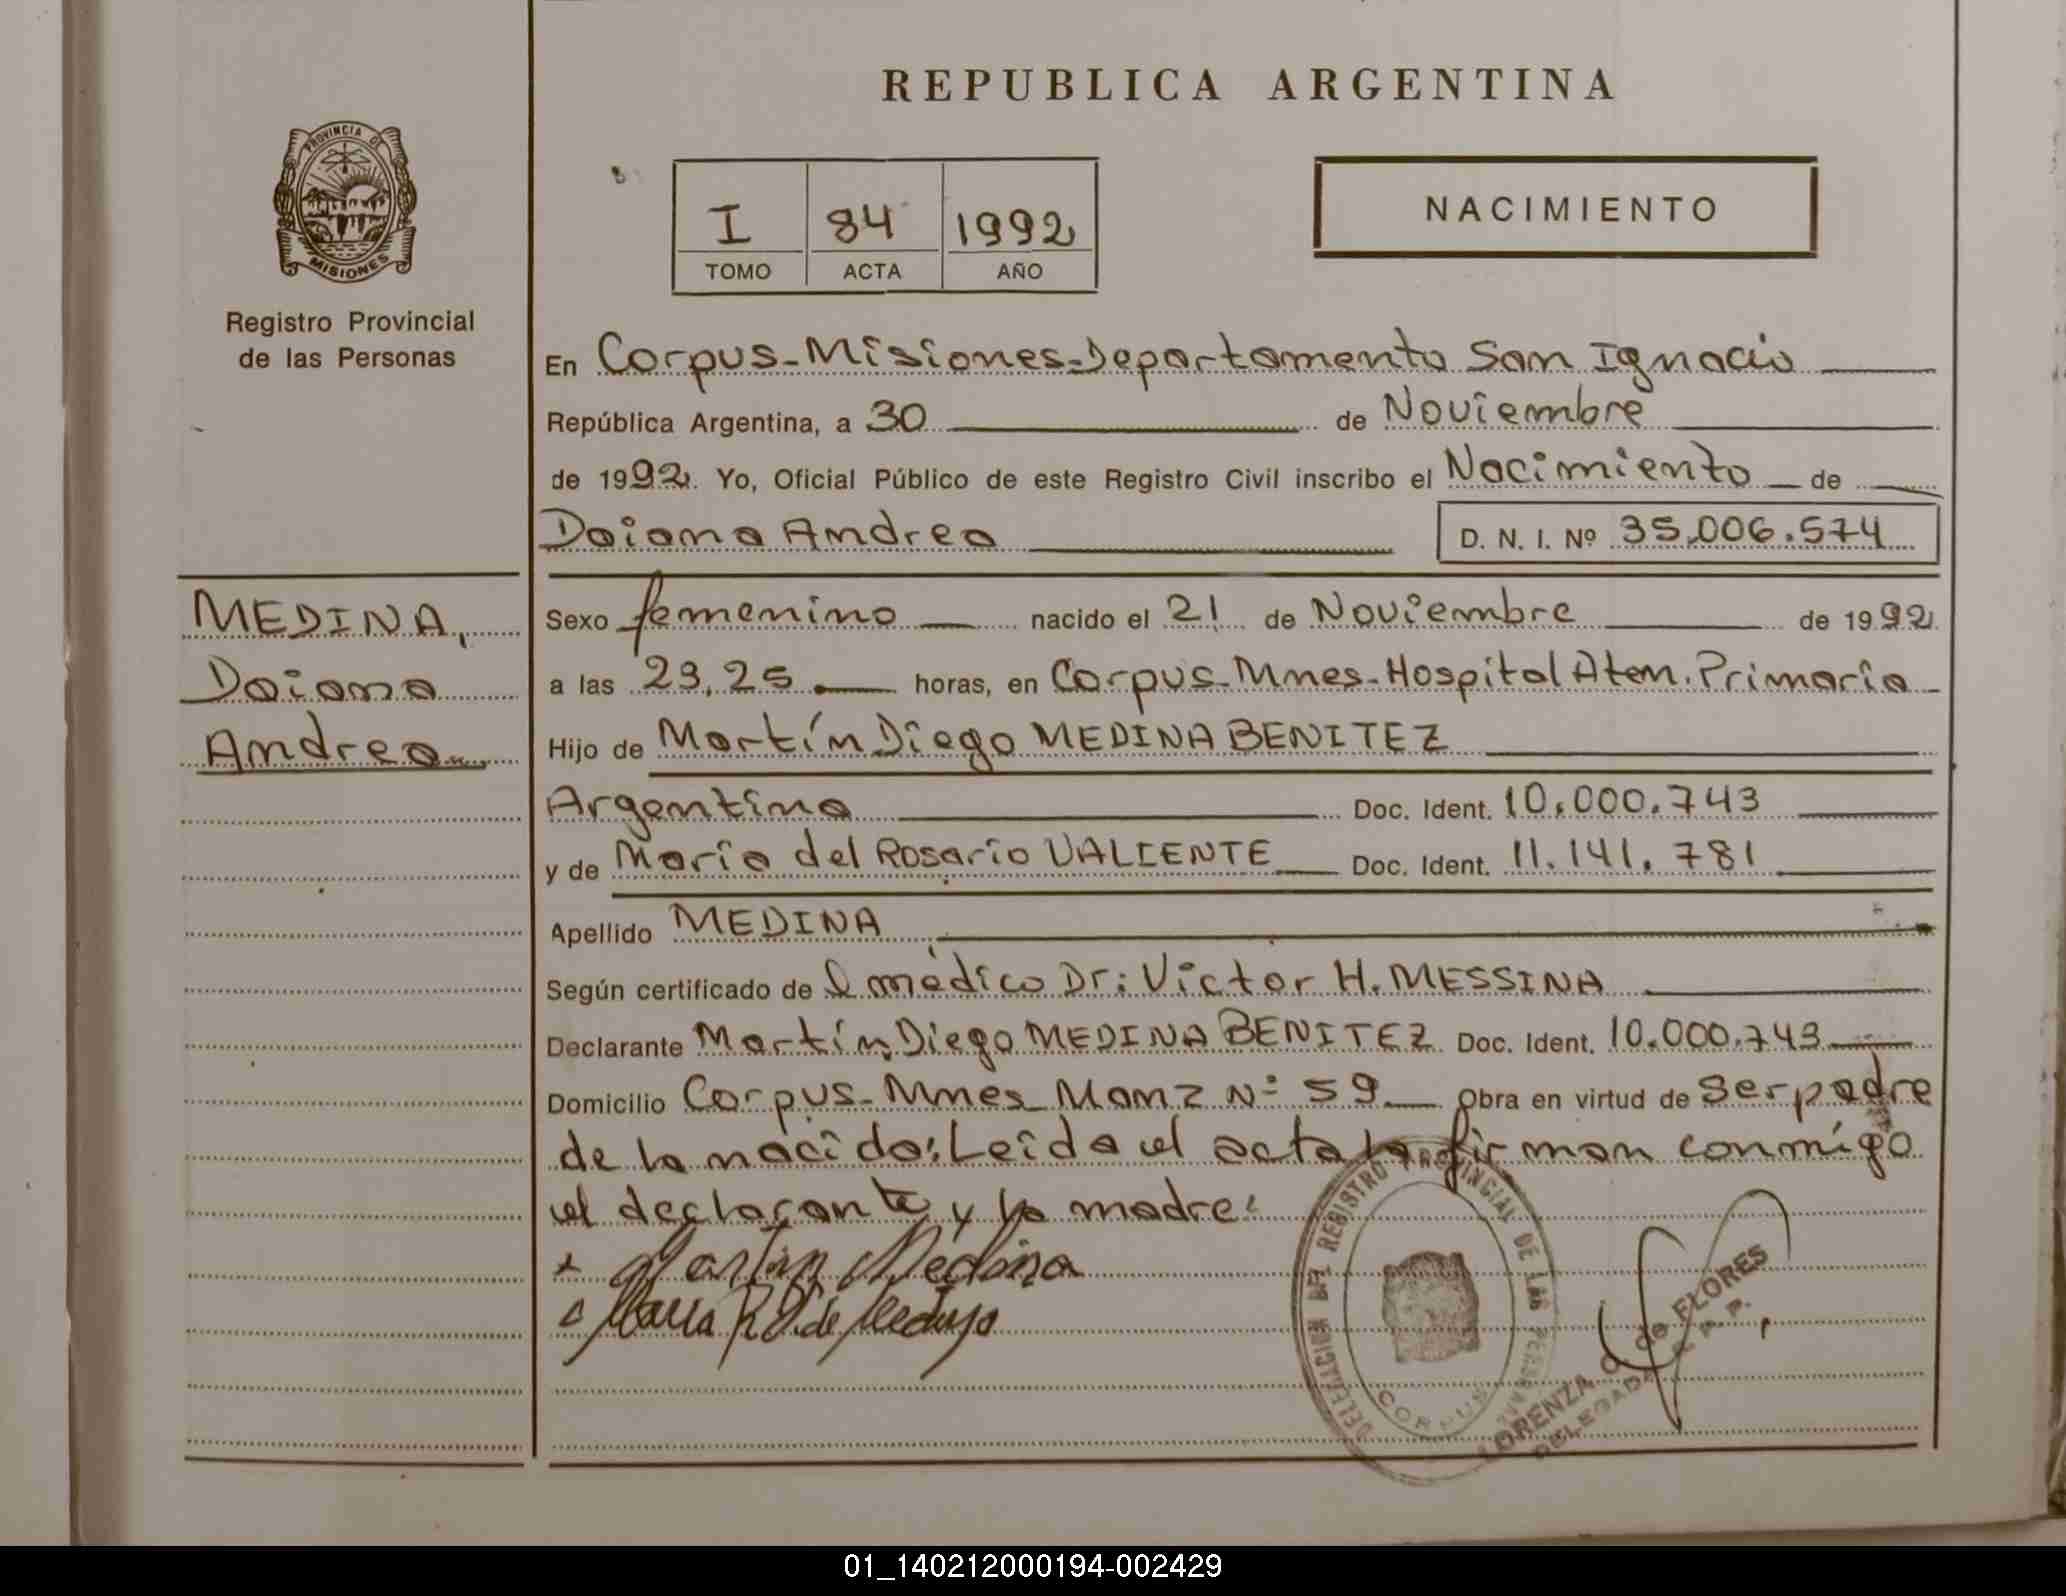 REPUBLICA ARGENTINA
PROVINCIA DE
MISIONES
Registro Provincial
de las Personas
I 84 1992
TOMO ACTA AÑO
NACIMIENTO
En Corpus-Misiones-Departamento San Ignacio
República Argentina, a 30 de Noviembre
de 1992. Yo, Oficial Público de este Registro Civil inscribo el Nacimiento de
Daiana Andrea D. N. I. Nº 35.006.574
MEDINA,
Daiana
Andrea
Sexo femenino nacido el 21 de Noviembre de 1992
a las 23,25 horas, en Corpus-Mnes-Hospital Aten. Primaria
Hijo de Martín Diego MEDINA BENITEZ
Argentino Doc. Ident. 10.000.743
y de María del Rosario VALIENTE Doc. Ident. 11.141.781
Apellido MEDINA
Según certificado de l médico Dr: Victor H. MESSINA
Declarante Martín Diego MEDINA BENITEZ Doc. Ident. 10.000.743
Domicilio Corpus-Mnes Manz Nº 59 Obra en virtud de ser padre
de la nacida: Leida el acta la firman conmigo
el declarante y la madre:
Martin Medina
Maria R V. de Medina
DELEGACION DEL REGISTRO PROVINCIAL DE LAS PERSONAS
CORPUS
LORENZA O. de FLORES
DELEGADA R. P. P.
01_140212000194-002429